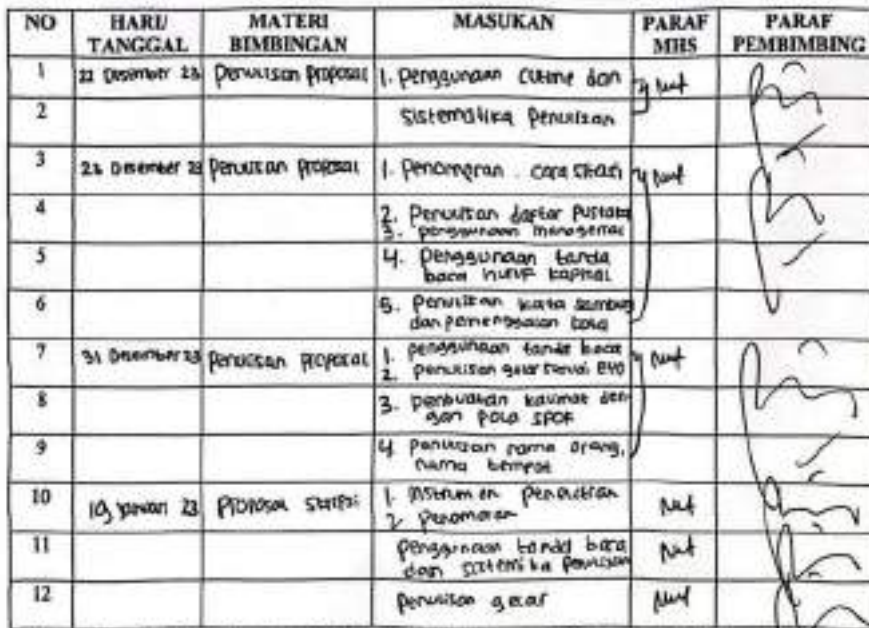 NO HARI/ TANGGAL MATERI BIMBINGAN MASUKAN PARAF MHS PARAF PEMBIMBING
1 22 Desember 23 Penulisan proposal 1. Penggunaan dan
2 sistematika Penulisan
3 Desember 23 Penulisan Proposal 1. Penomoran. cara sitasi
4 2. Penulisan daftar Pustaka
3. penggunaan
5 4. Penggunaan tanda
baca huruf kapital
6 5. Penulisan kata sambung
dan pemenggalan kata
7 31 Desember 23 penulisan proposal 1. penggunaan tanda baca
2. penulisan gelar sesuai EYD
8 3. pembuatan kalimat den-
gan pola SPOK
9 4. penulisan nama orang,
nama tempat
10 Januari 23 Proposal Skripsi 1. Instrumen Penelitian
2. penomoran
11 penggunaan tanda baca
dan penulisan
12 Penulisan gelar